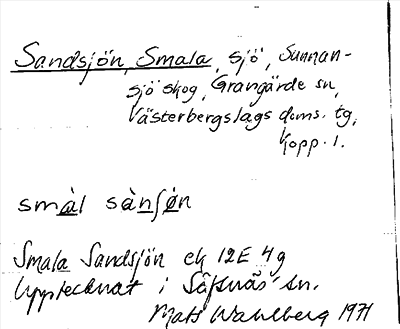 Sandsjön, Smala, sjö, Sunnan-
sjö skog, Grangärde sn,
Västerbergslags doms. tg,
Kopp. l.
smàl sànsjön
Smala Sandsjön ek 12E 4g
Upptecknat i Säfsnäs sn.
Mats Wahlberg 1971